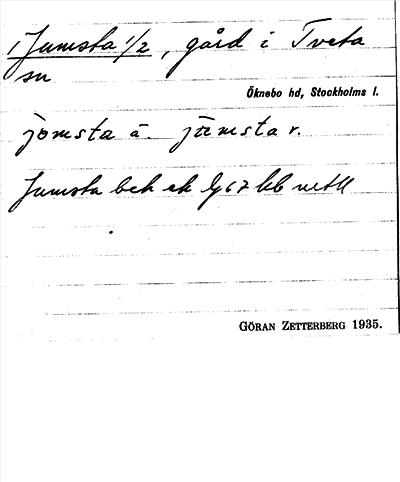 1 Jumsta 1/2, gård i Tveta
sn
Öknebo hd, Stockholms l.
jomsta ä. jumsta r.
Jumsta beh ek
GÖRAN ZETTERBERG 1935.